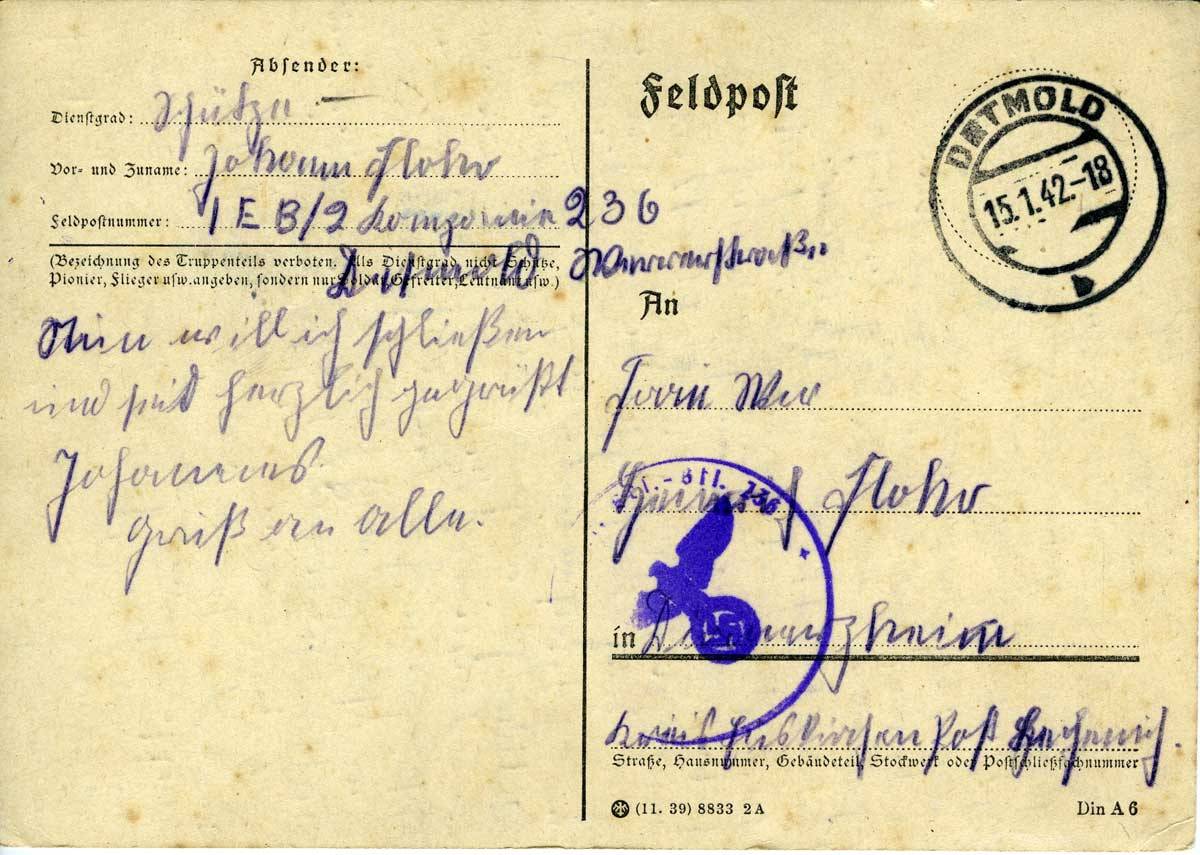 Absender:
Dienstgrad: Schütze
Vor- und Zuname: Johann Flohr
Feldpostnummer: 1 E B/2 Kompanie 236
(Bezeichnung des Truppenteils verboten. Als Dienstgrad nicht Schütze,
Pionier, Flieger usw. angeben, sondern nur Soldat, Gefreiter, Leutnant usw.)
Detmold
Nun will ich schließen
und seid herzlich gegrüßt
Johannes
Gruß an alle.
Feldpost
DETMOLD
15.1.42.-18
b
An
Frau Wwe
Flohr
236
in
Kreis Euskirchen Post Lechenich.
Straße, Hausnummer, Gebäudeteil, Stockwerk oder Postschließfachnummer
(11. 39) 8833 2 A
Din A 6